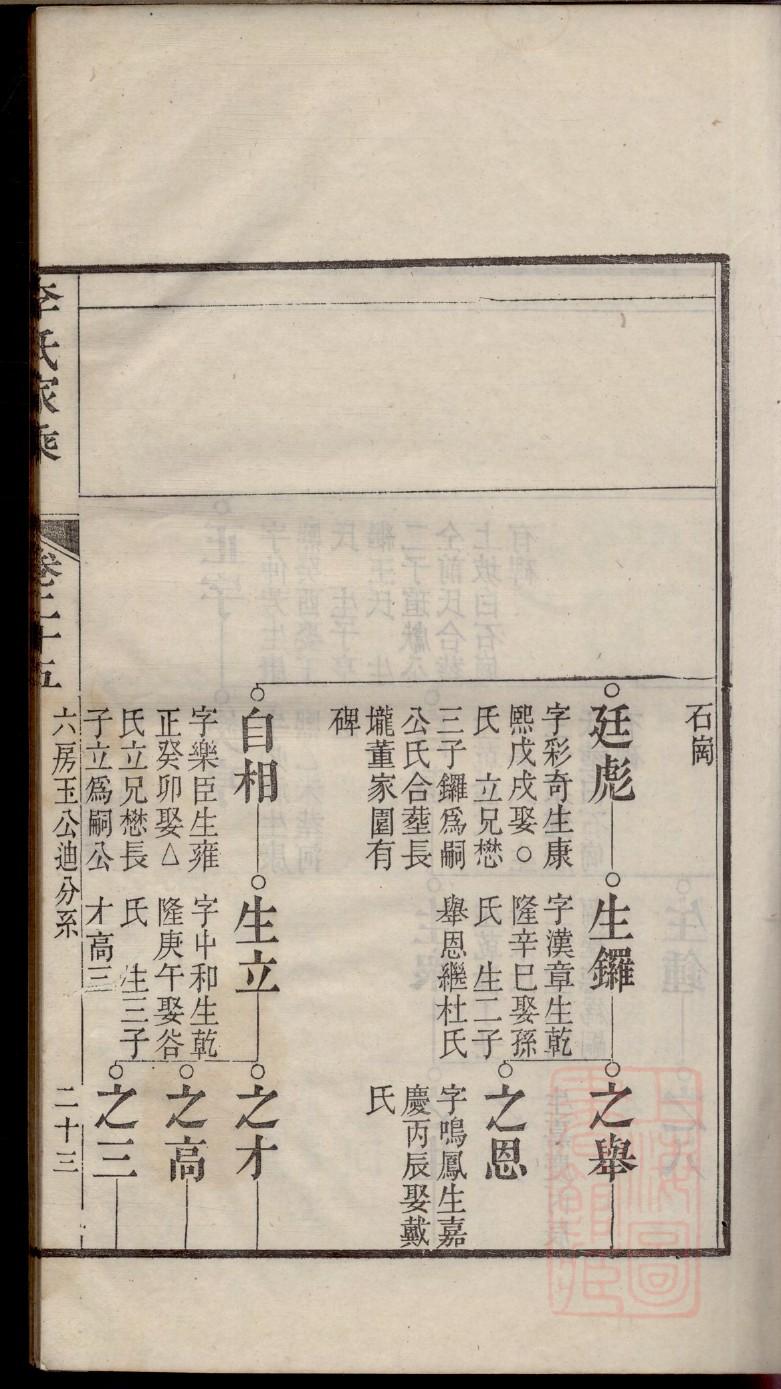 石崗
廷彪
字彩奇生康
熙戊戌娶○
氏 立兄懋
三子鑼爲嗣
公氏合塟長
壠董家園有
碑
生鑼
字漢章生乾
隆辛巳娶孫
氏 生二子
舉恩繼杜氏
之舉
之恩
字鳴鳳生嘉
慶丙辰娶戴
氏
自相
字樂臣生雍
正癸卯娶△
氏立兄懋長
子立爲嗣公
生立
字中和生乾
隆庚午娶谷
氏 生三子
才高三
之才
之高
之三
李氏家乘
卷二十五
六房玉公迪分系
二十三